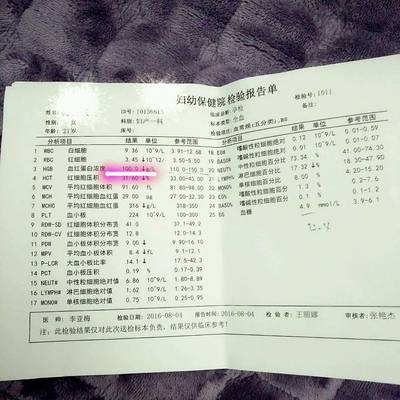 妇幼保健院检验报告单
ID号: 10136815 检验号: 1011
科别: 妇产一科 标本类型: 全血 备注:
年龄: 21岁 床号: 检验项目: 血常规(五分类),BS
分析项目 结果 单位 参考范围 分析项目 结果 单位 参考范围
1 WBC 白细胞 9.36 10^9/L 3.91-12.68
2 RBC 红细胞 3.45 ↓ 10^12/ 3.50-5.50
3 HGB 血红蛋白浓度 100.0 ↓ g/L 110.0-150.0
4 HCT 红细胞压积 ↓ % 33.00-45.00
5 MCV 平均红细胞体积 91.60 fL 81.80-98.00
6 MCH 平均红细胞血红蛋 29.00 pg 27.00-32.00
7 MCHC 平均血红蛋白浓度 316 ↓ g/L 320-360
8 PLT 血小板 224 10^9/L 100-300
9 RDW-SD 红细胞体积分布宽 41.0 37.0-50.0
10 RDW-CV 红细胞体积分布宽 12.8 12.0-14.3
11 PDW 血小板分布宽 9.00 ↓ 9.90-16.10
12 MPV 平均血小板体积 8.4 ↓ fL 9.1-12.1
13 P-LCR 大血小板比率 14.1 ↓ 17.5-42.3
14 PCT 血小板压积 0.19 % 0.17-0.39
15 NEUT# 中性粒细胞绝对值 6.86 10^9/L 1.80-8.89
16 LYMPH# 淋巴细胞绝对值 1.62 10^9/L 1.26-3.35
17 MONO# 单核细胞绝对值 0.75 10^9/L 0.25-0.95
嗜酸性粒细胞绝对 0.12 10^9/L 0.01-0.59
19 BASO# 嗜碱性粒细胞绝对 0.01 10^9/L 0.01-0.07
中性粒细胞百分比 73.34 % 41.00-74.70
淋巴细胞百分比 17.32 ↓ % 18.50-48.70
单核细胞百分比 8.00 % 4.20-15.20
嗜酸性粒细胞百分 1.3 %
嗜碱性粒细胞百分 0.1 %
血糖 4.9 mmol/L 3.9-6.1
医师: 李亚梅 检验日期: 2016-08-04 报告时间: 2016-08-04 检验者: 王丽娜 审核者: 张艳杰
此检验结果仅对此次送检标本负责,结果仅供临床参考!